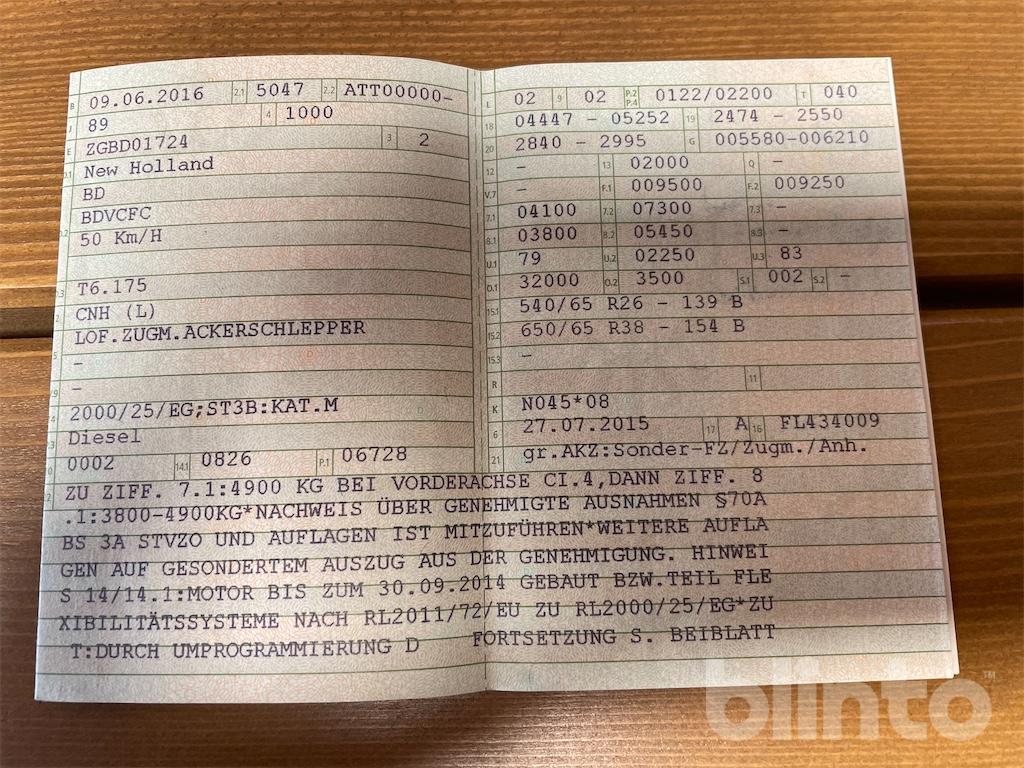 B 09.06.2016 2.1 5047 2.2 ATT00000-
J 89 4 1000
E ZGBD01724 3 2
D.1 New Holland
BD
D.2 BDVCFC
50 Km/H
D.3 T6.175
2 CNH (L)
5 LOF.ZUGM.ACKERSCHLEPPER
-
V.9 -
14 2000/25/EG;ST3B:KAT.M
P.3 Diesel
10 0002 14.1 0826 P.1 06728
L 02 9 02 P.2 P.4 0122/02200 T 040
18 04447 - 05252 19 2474 - 2550
20 2840 - 2995 G 005580-006210
12 - 13 02000 Q -
V.7 - F.1 009500 F.2 009250
7.1 04100 7.2 07300 7.3 -
8.1 03800 8.2 05450 8.3 -
U.1 79 U.2 02250 U.3 83
O.1 32000 O.2 3500 S.1 002 S.2 -
15.1 540/65 R26 - 139 B
15.2 650/65 R38 - 154 B
15.3 -
R 11
K N045*08
6 27.07.2015 17 A 16 FL434009
21 gr.AKZ:Sonder-FZ/Zugm./Anh.
22 ZU ZIFF. 7.1:4900 KG BEI VORDERACHSE CI.4,DANN ZIFF. 8
.1:3800-4900KG*NACHWEIS ÜBER GENEHMIGTE AUSNAHMEN §70A
BS 3A STVZO UND AUFLAGEN IST MITZUFÜHREN*WEITERE AUFLA
GEN AUF GESONDERTEM AUSZUG AUS DER GENEHMIGUNG. HINWEI
S 14/14.1:MOTOR BIS ZUM 30.09.2014 GEBAUT BZW.TEIL FLE
XIBILITÄTSSYSTEME NACH RL2011/72/EU ZU RL2000/25/EG*ZU
T:DURCH UMPROGRAMMIERUNG D FORTSETZUNG S. BEIBLATT
blinto™